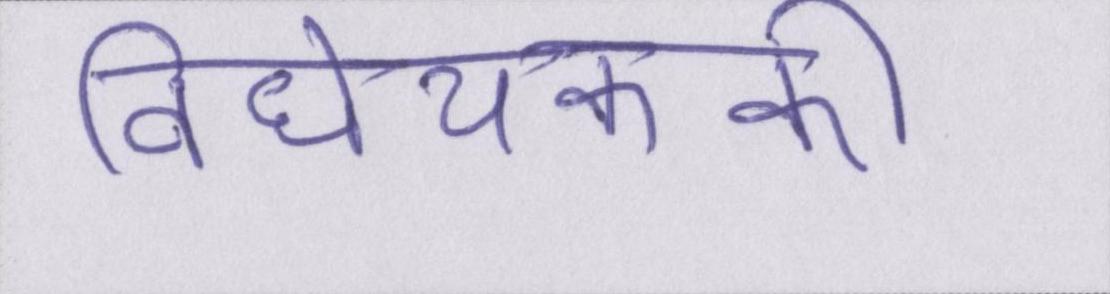 विधेयक की